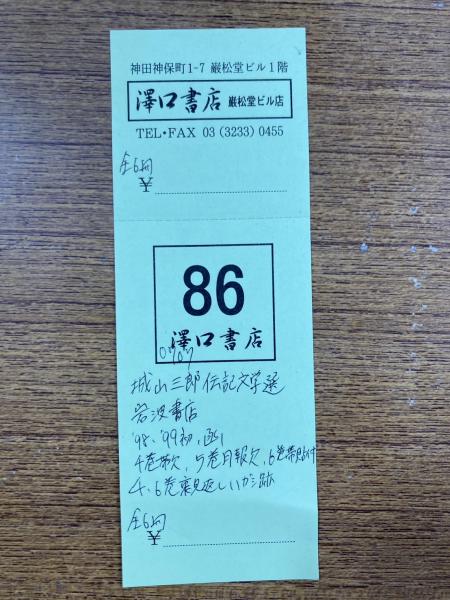 神田神保町1-7 巌松堂ビル1階
澤口書店 巌松堂ビル店
TEL・FAX 03 (3233) 0455
全6冊
¥
86
澤口書店
城山三郎伝記文学選
岩波書店
'98、'99初、函
4巻帯欠、5巻月報欠、6巻帯貼付
4、6巻裏見返し 跡
全6冊
¥